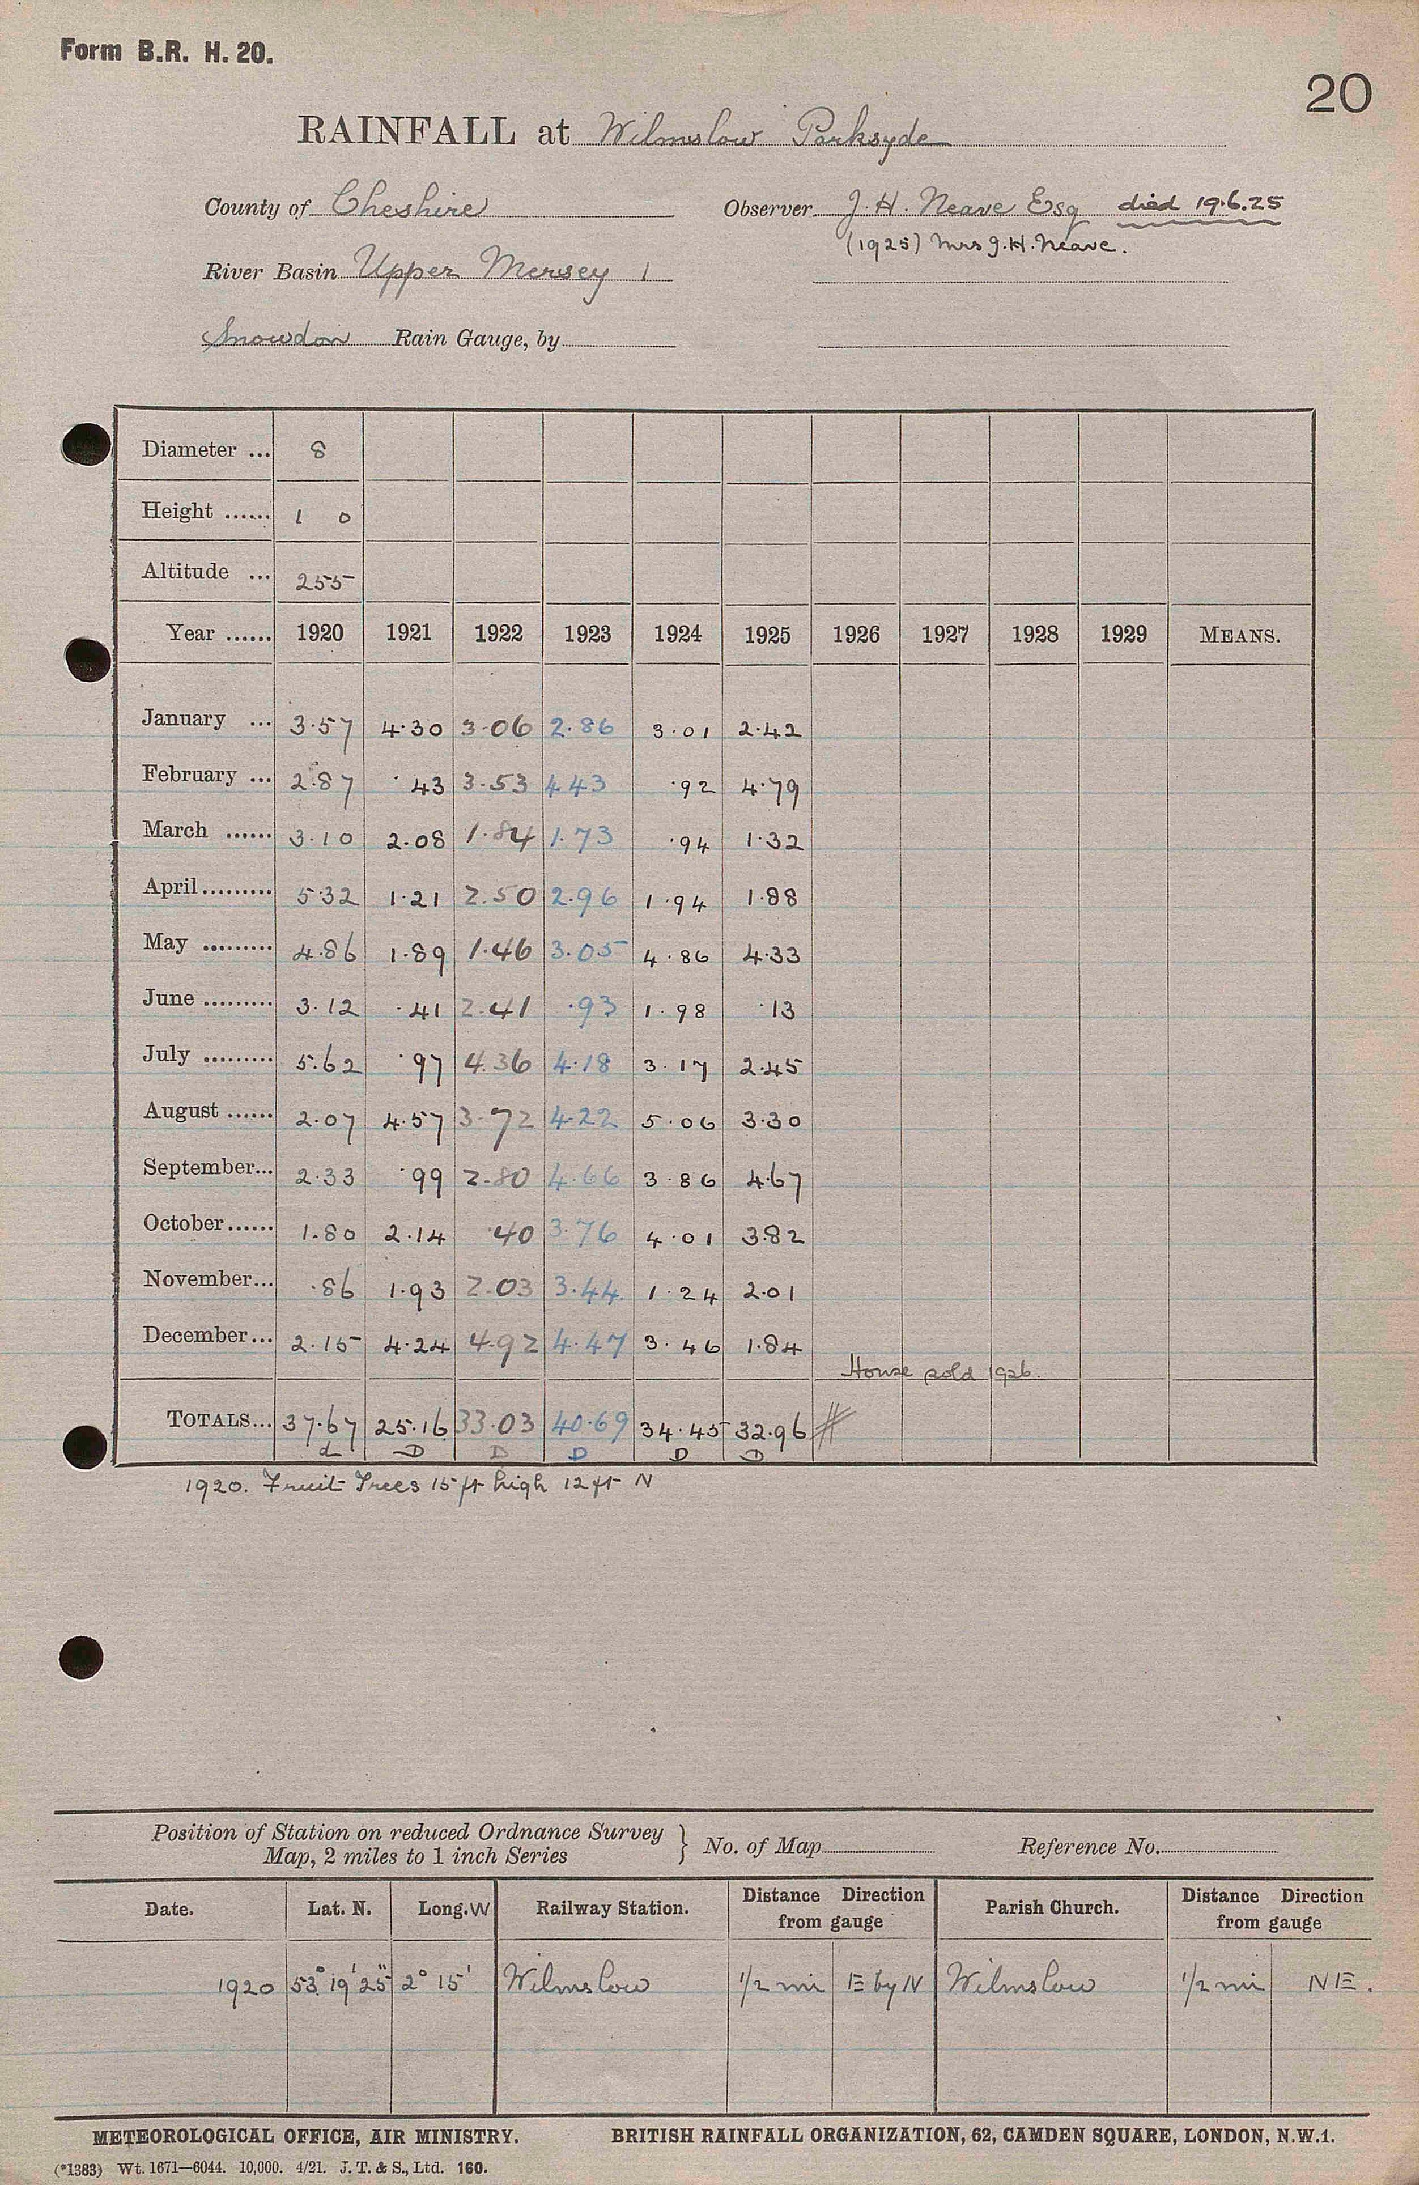 Form B.R. H. 20.
20
RAINFALL at Wilmslow Parksyde
County of Cheshire Observer J. H. Neave Esq died 19.6.25
(1925) Mrs J.H. Neave.
River Basin Upper Mersey 1
Snowdon Rain Gauge, by
Diameter ... 8
Height ...... 1 0
Altitude ... 255
Year ...... 1920 1921 1922 1923 1924 1925 1926 1927 1928 1929 MEANS.
January ... 3.57 4.30 3.06 2.86 3.01 2.42
February ... 2.87 .43 3.53 4.43 .92 4.79
March ...... 3.10 2.08 1.84 1.73 .94 1.32
April ......... 5.32 1.21 2.50 2.96 1.94 1.88
May ......... 4.86 1.89 1.46 3.05 4.86 4.33
June ......... 3.12 .41 2.41 .93 1.98 .13
July ......... 5.62 .97 4.36 4.18 3.17 2.45
August ...... 2.07 4.57 3.72 4.22 5.06 3.30
September... 2.33 .99 2.80 4.66 3.86 4.67
October ...... 1.80 2.14 .40 3.76 4.01 3.82
November... .86 1.93 2.03 3.44 1.24 2.01
December ... 2.15 4.24 4.92 4.47 3.46 1.84
House sold 1926.
TOTALS... 37.67 25.16 33.03 40.69 34.45 32.96 #
d D D D D D
1920. Fruit Trees 15 ft high 12 ft N
Position of Station on reduced Ordnance Survey
Map, 2 miles to 1 inch Series } No. of Map Reference No.
Date. Lat. N. Long. W Railway Station. Distance Direction from gauge Parish Church. Distance Direction from gauge
1920 53° 19' 25" 2° 15' Wilmslow 1/2 mi E by N Wilmslow 1/2 mi NE.
METEOROLOGICAL OFFICE, AIR MINISTRY. BRITISH RAINFALL ORGANIZATION, 62, CAMDEN SQUARE, LONDON, N.W.1.
(*1383) Wt. 1671—6044. 10,000. 4/21. J. T. & S., Ltd. 160.